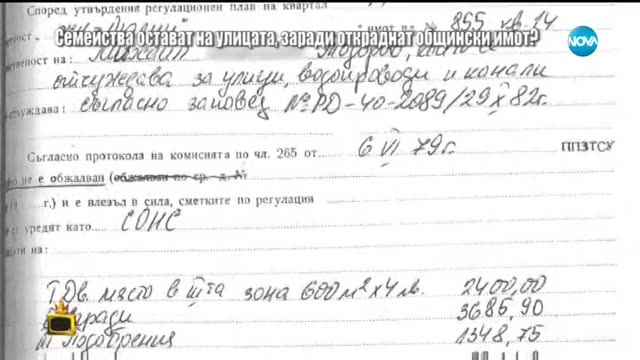 Според утвърдения регулационен план на квартал
имот пл. № 855 кв. 14
Семейства остават на улицата, заради откраднат общински имот?
NOVA
Михаил Тодоров,
отчуждава за улици, водопроводи и канали
съгласно заповед № РД-40-2089/29 X 82г.
Съгласно протокола на комисията по чл. 265 от 6 VI 79 г. ППЗТСУ
не е обжалван (обжалван по гр. д. №
19 г.) и е влезъл в сила, сметките по регулация
се уредят като СОНС
I Дв. място в III та зона 600 м² х 4 лв. 2400,00
3685,90
III Подобрения 1348,75